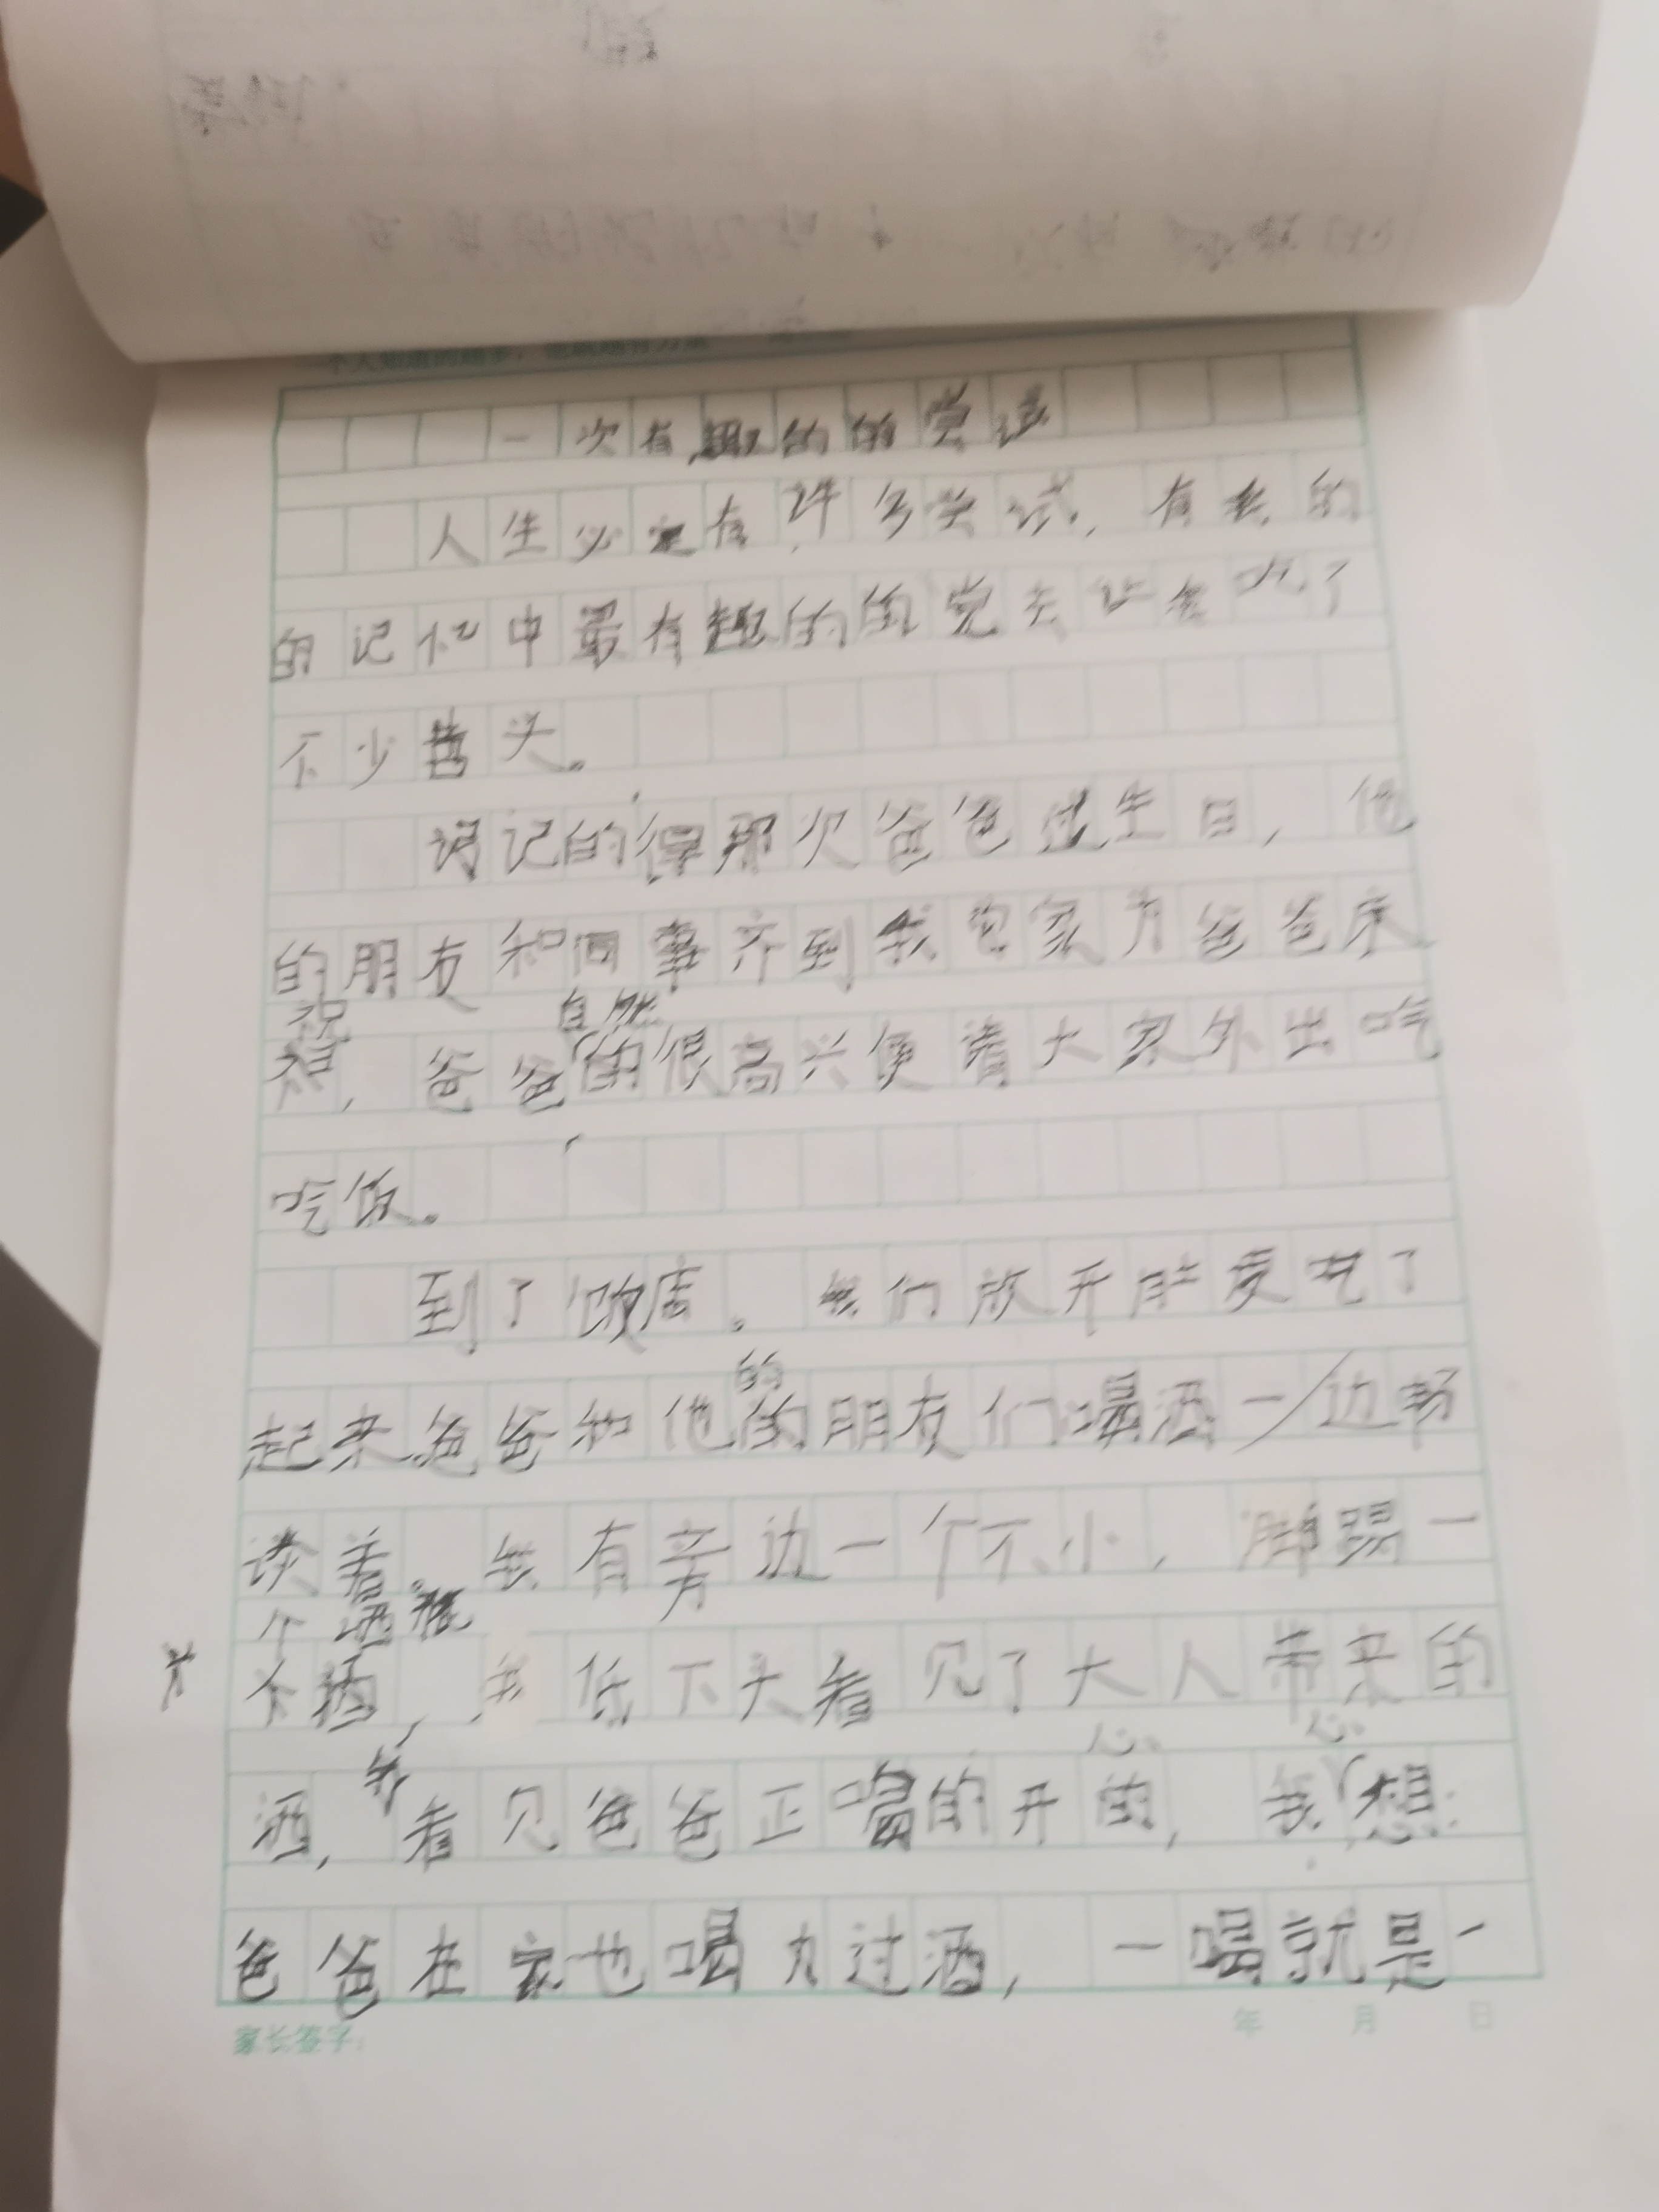 一次有趣的的尝试
人生必定有许多尝试，有我的
的记忆中最有趣的的
不少苦头。
记的得那次爸爸过生日，他
的朋友和同事齐到我家为爸爸庆
祝
自然
，爸爸的很高兴便请大家外出吃
吃饭。
到了饭店。我们放开肚皮吃了
的
起来爸爸和他的朋友们喝酒一边畅
谈着。我有旁边一个不小，脚踢一
个酒瓶
个酒，我低下头看见了大人带来的
心 心
酒，看见爸爸正喝的开的，我想
爸爸在家也喝过酒，一喝就是一
家长签字：
年 月 日